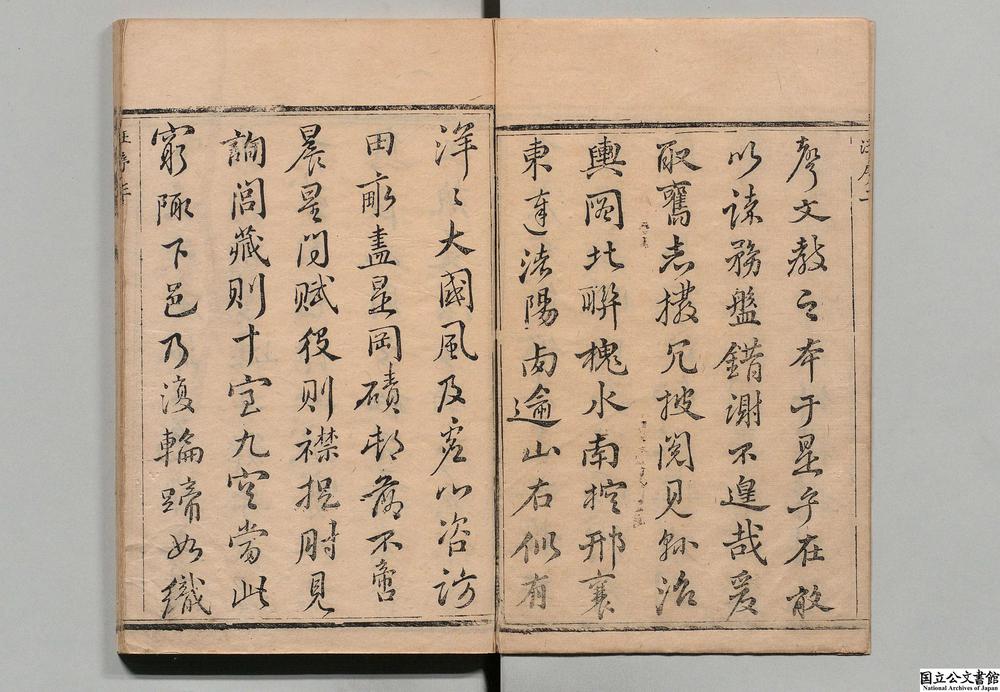 聲文教之本于是乎在敢
以務盤錯謝不遑哉爰
取舊志撥冗披閱見縣治
輿圖北聯槐水南控邢襄
東陽鹵踰山右似有
洋〻大國風及虛心咨訪
田畝盡是岡磧邨落不啻
晨星問賦役則襟捉肘見
詢閭藏則十室九空當此
窮陬下邑乃復輪蹄如織
国立公文書館
National Archives of Japan